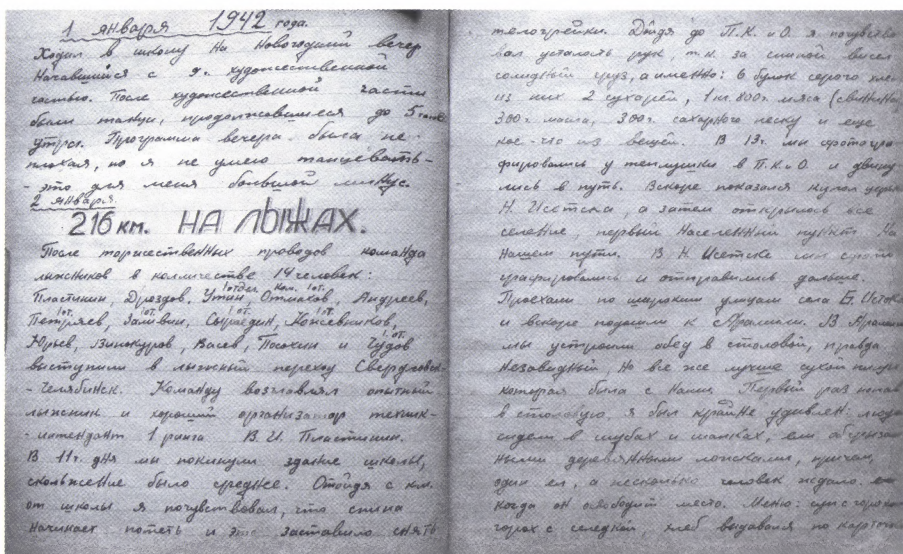 1 января 1942 года.
Ходил в школу на Новогодний вечер
начавшийся с 9ч. художественной
частью. После художественной части
были танцы, продолжавшиеся до 5
утра. Программа вечера была не-
плохая, но я не умею танцевать-
- это для меня большой минус.
2 января.
216 км. НА ЛЫЖАХ.
После торжественных проводов команда
лыжников в количестве 14 человек:
Пластинин, Дроздов, Утин, Отмахов, Андреев,
Петряев, Заливин, Сыраедин, Кожевников,
Юрьев, Винокуров, Васев, Посохин и Чудов
выступили в лыжный переход Свердловск-
- Челябинск. Команду возглавлял опытный
лыжник и хороший организатор техник-
- интендант 1 ранга В. И. Пластинин.
В 11 ч. дня мы покинули здание школы,
скольжение было среднее. Отойдя с км.
от школы я почувствовал, что спина
начинает потеть и это заставило снять
телогрейки. Дойдя до П.К. и О. я почувство
вал усталость рук, т.к. за спиной висел
солидный груз, а именно: 6 булок серого
из них 2 сухарей, 1 кг. 800г. мяса (свинина)
300г. масла, 300г. сахарного песку и еще
кое-что из вещей. В 13ч. мы фотогра
фировались у теплушки в П.К. и О и двину
лись в путь. Вскоре показался купол
Н Исетска, а затем открылось все
селение, первый населенный пункт на
нашем пути. В Н. Исетске мы фото
графировались и отправились дальше.
Проехали по широким улицам села Б. Исток
и вскоре подошли к Арамили. В Арамили
мы устроили обед в столовой, правда
незавидный, но все же лучше сухой пищи
которая была с нами. Первый раз попав
в столовую, я был крайне удивлен: люди
сидели в шубах и шапках, ели обгрызан
ными деревянными ложками, причем,
один ел, а несколько человек ждало
когда он освободит место. Меню: суп с горохом
горох с селедкой, хлеб выдавался по карточк